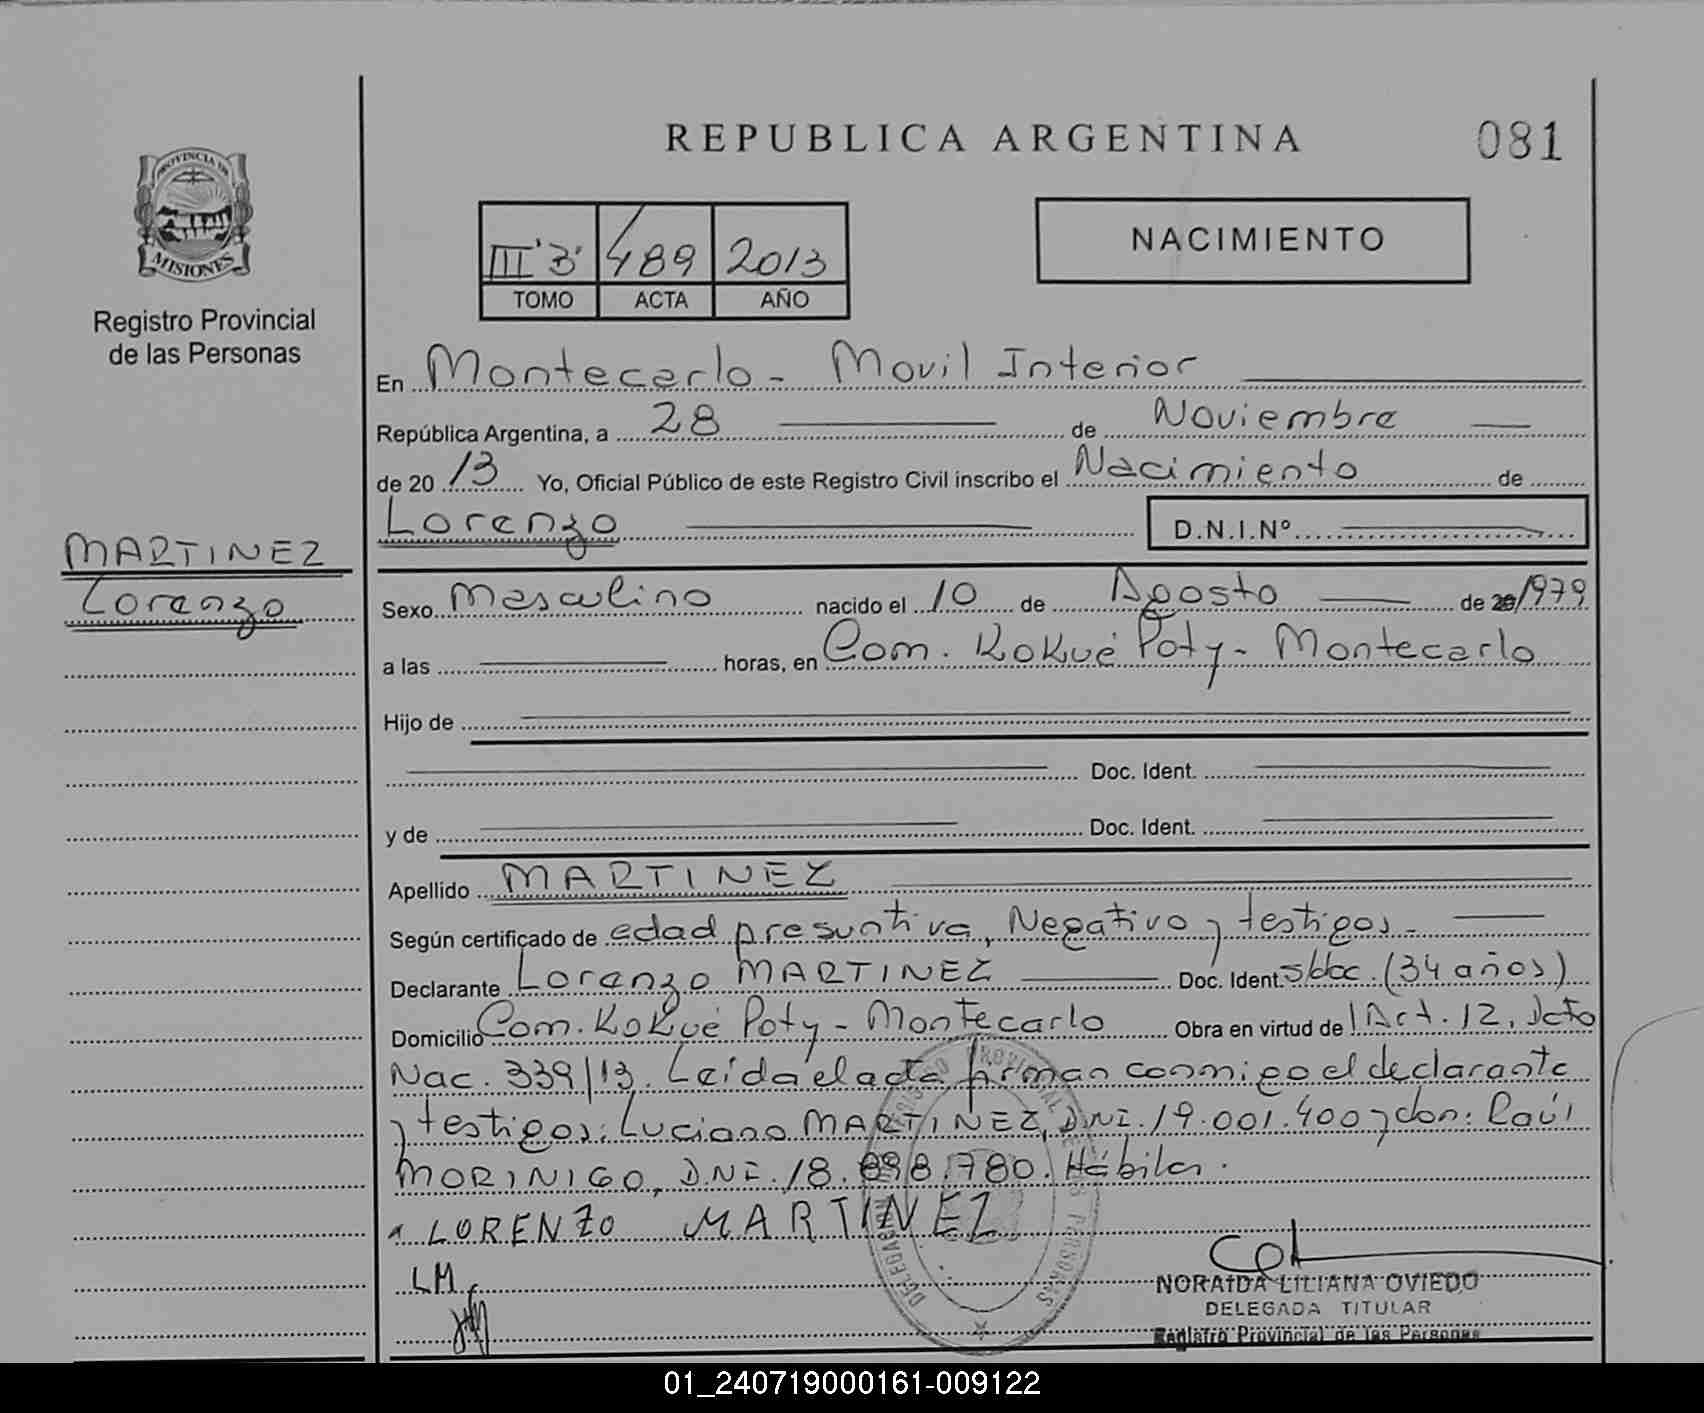 REPUBLICA ARGENTINA
081
PROVINCIA DE
MISIONES
Registro Provincial
de las Personas
III "B" 489 2013
TOMO ACTA AÑO
NACIMIENTO
En Montecarlo - Movil Interior
República Argentina, a 28 de Noviembre
de 20 13 Yo, Oficial Público de este Registro Civil inscribo el Nacimiento de
Lorenzo D.N.I.Nº
MARTINEZ
Lorenzo
Sexo Masculino nacido el 10 de Agosto de 20 1979
a las horas, en Com. Kokué Poty - Montecarlo
Hijo de
Doc. Ident.
y de Doc. Ident.
Apellido MARTINEZ
Según certificado de edad presuntiva, Negativo y testigos.
Declarante Lorenzo MARTINEZ Doc. Ident. s/doc. (34 años)
Domicilio Com. Kokué Poty - Montecarlo Obra en virtud de l Art. 12, Dcto
Nac. 339/13. Leída el acta firman conmigo el declarante
y testigos: Luciano MARTINEZ, DNI. 19.001.400 y don: Raúl
MORINIGO, D.N.I. 18.898.780. Hábiles.
LORENZO MARTINEZ
LM
NORAIDA LILIANA OVIEDO
DELEGADA TITULAR
Registro Provincial de las Personas
01_240719000161-009122